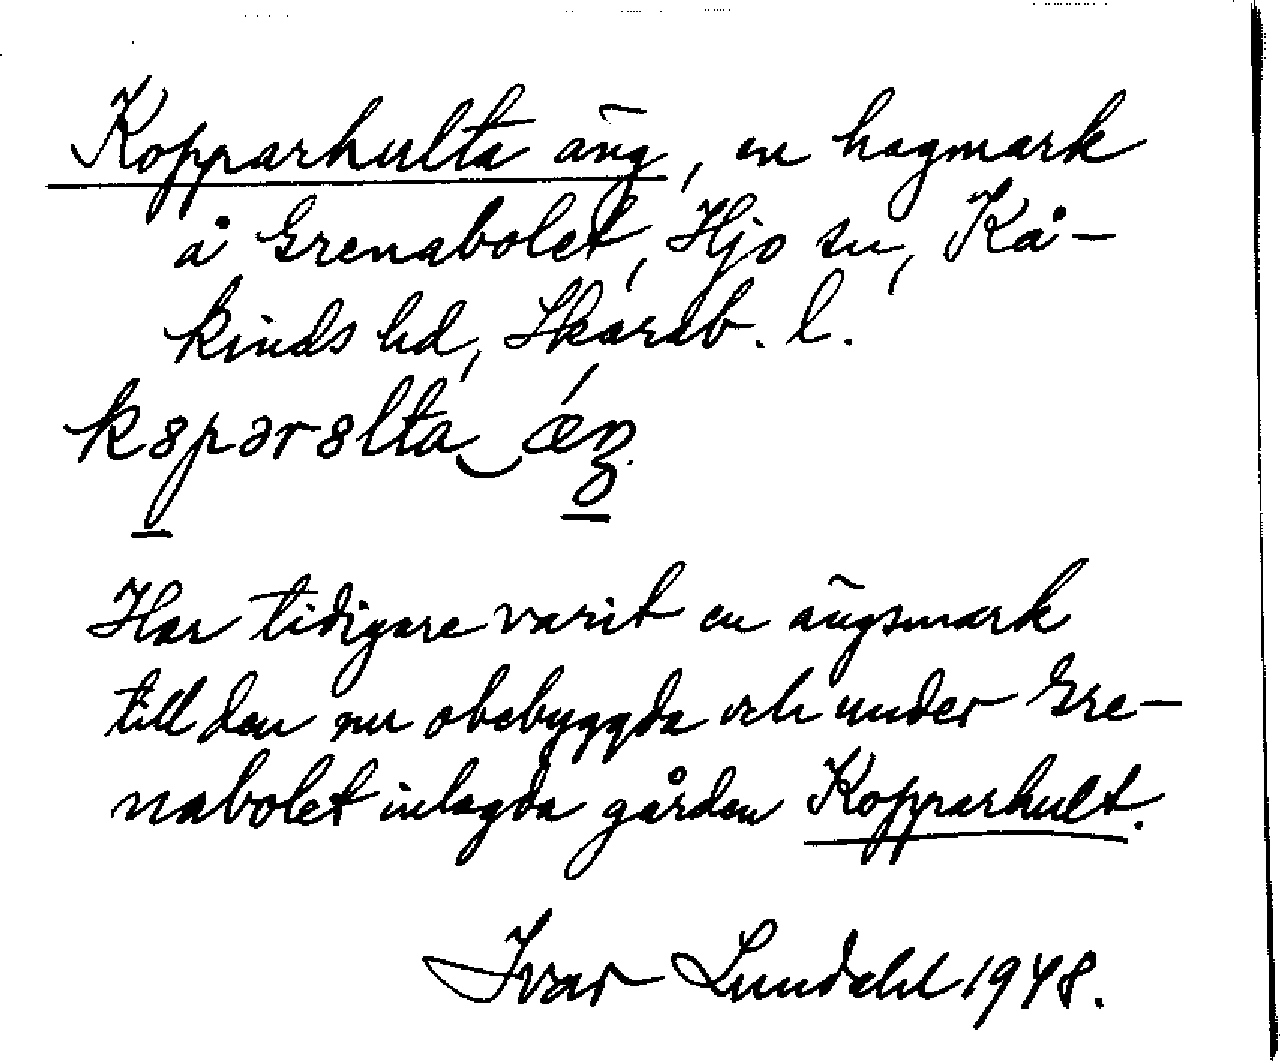 Kopparhulta äng, en hagmark
å Grenabolet, Hjo sn, Kå-
kinds hd, Skarab. l.
k8pər8lta ǽŋ.
Har tidigare varit en ängsmark
till den nu obebyggda och under Gre-
nabolet inlagda gården Kopparhult.
Ivar Lundahl 1948.